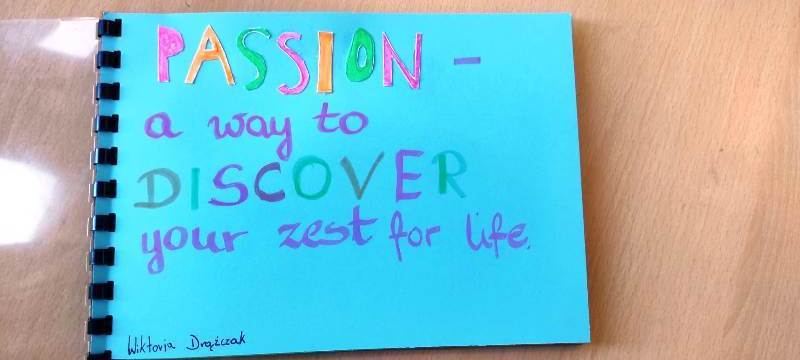 PASSION -
a way to
DISCOVER
your zest for life.
Wiktoria Drążczak